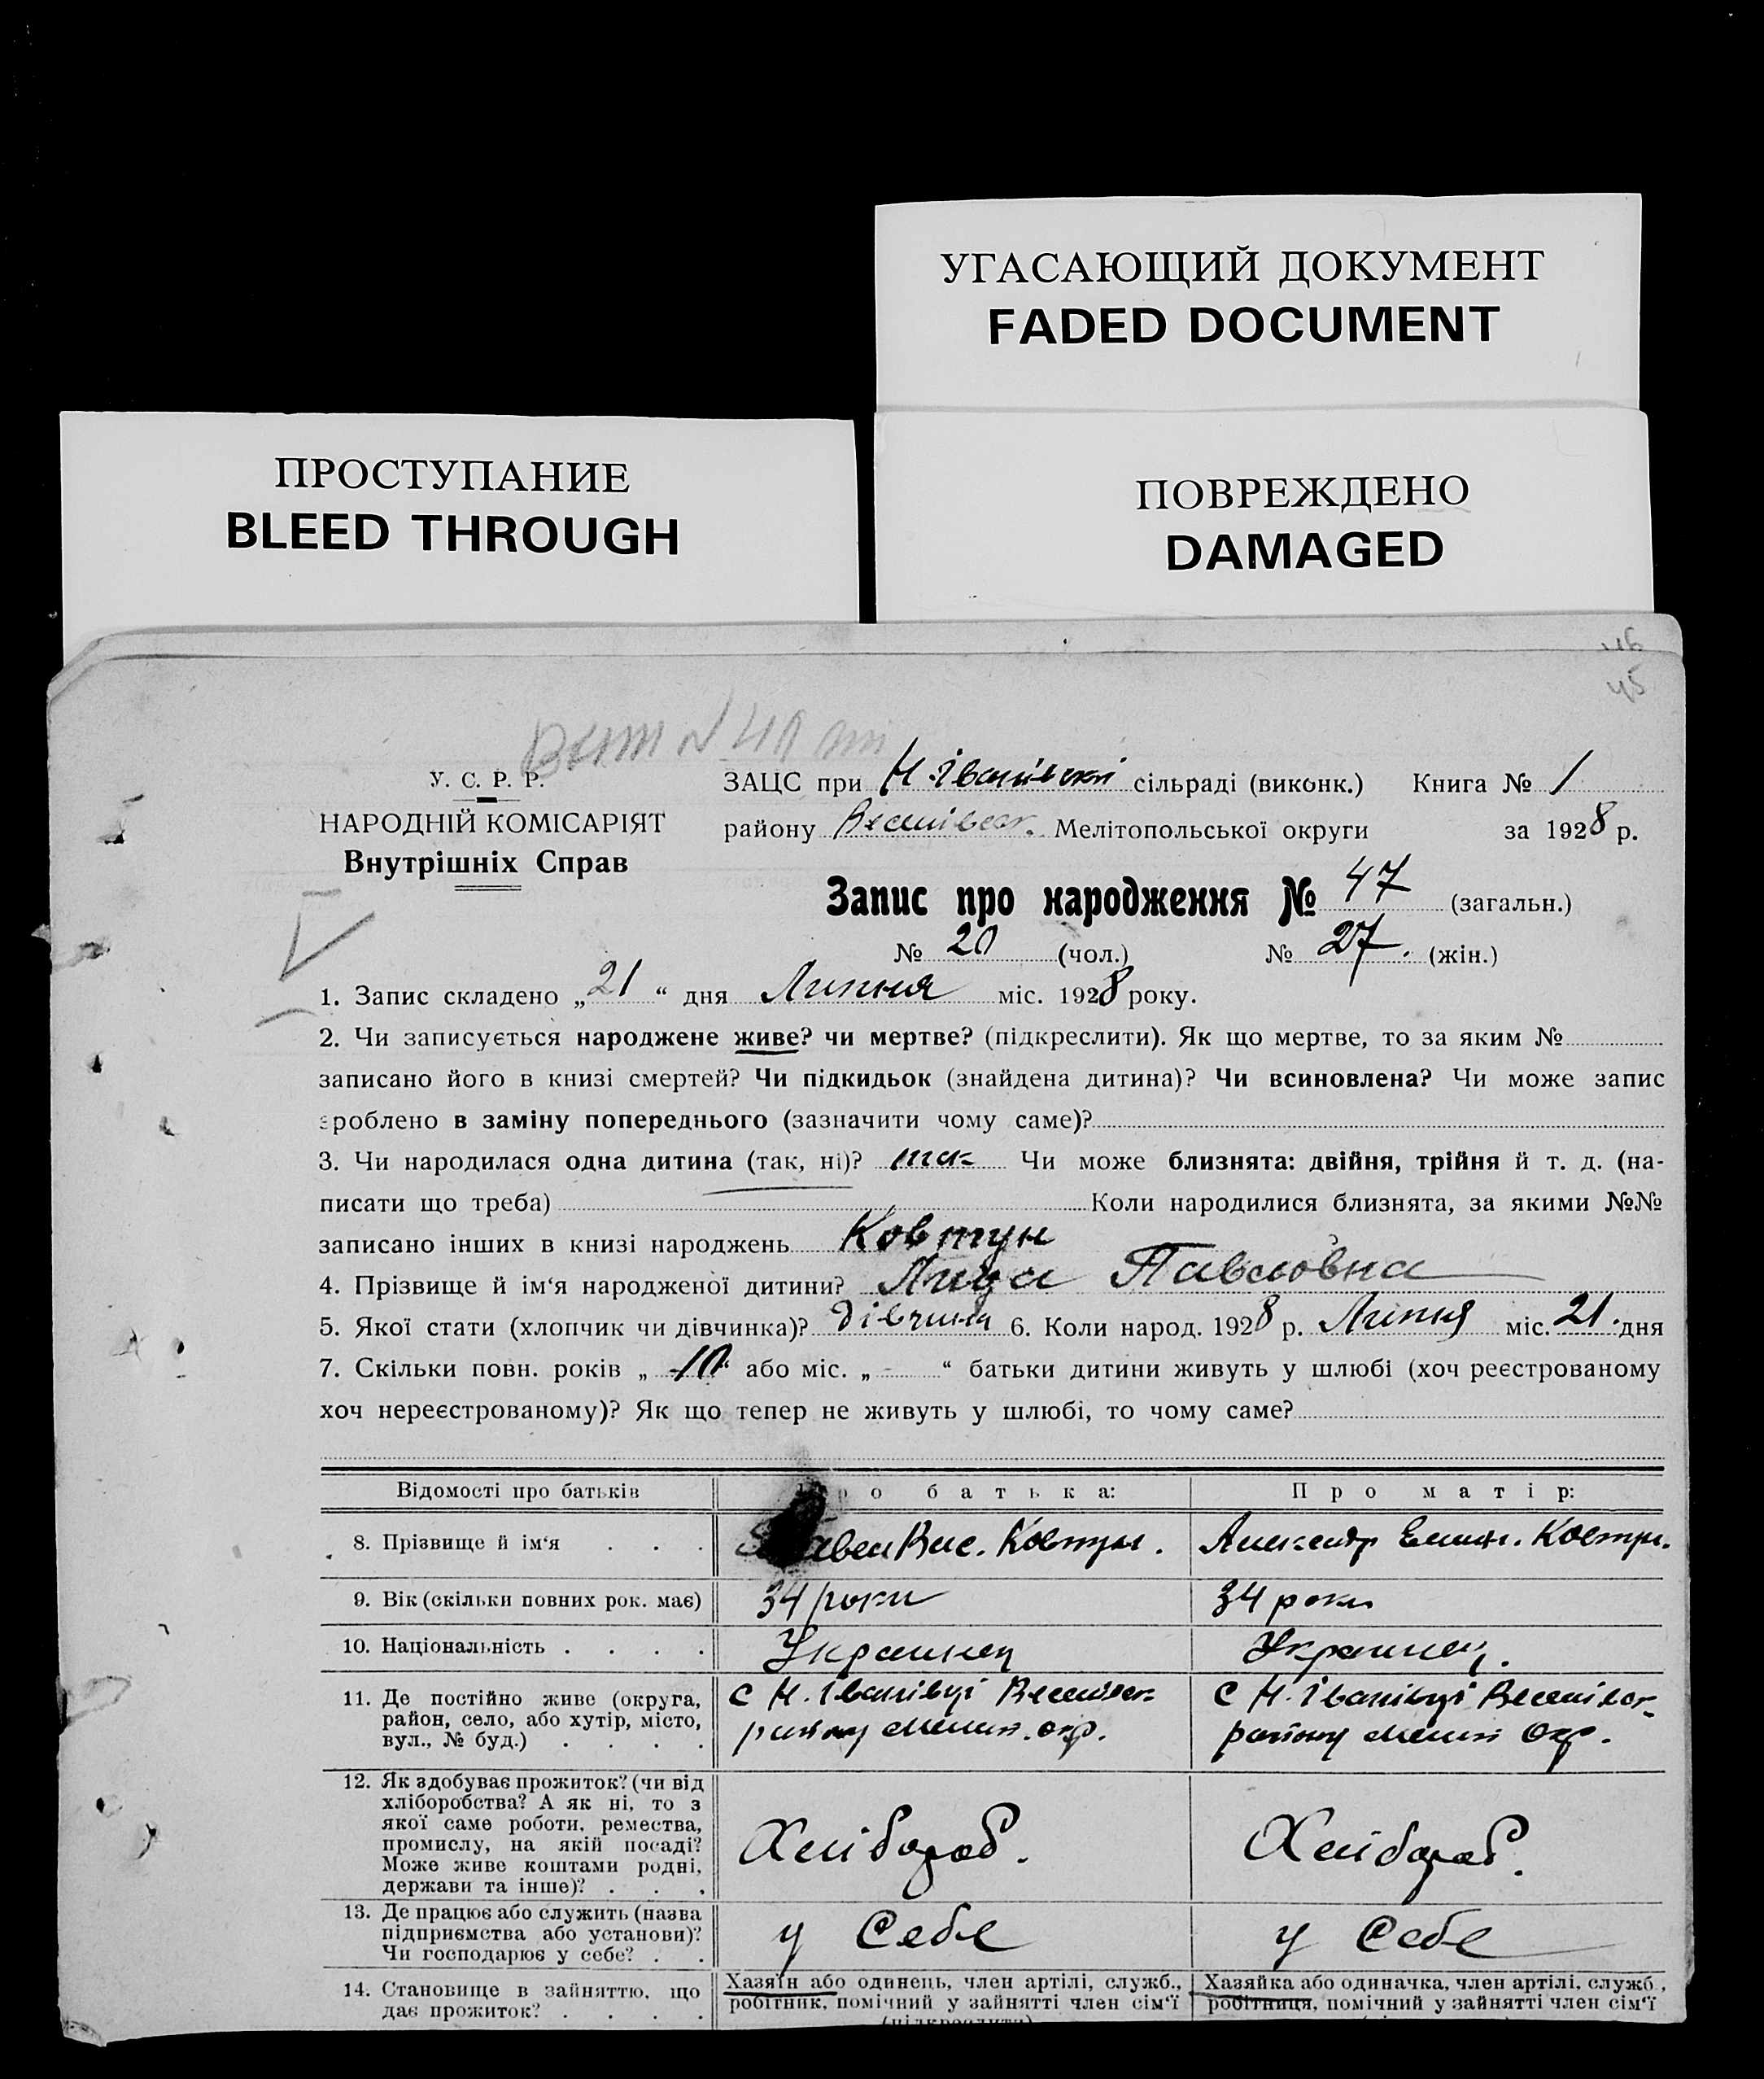 УГАСАЮЩИЙ ДОКУМЕНТ
FADED DOCUMENT
ПРОСТУПАНИЕ
BLEED THROUGH
ПОВРЕЖДЕНО
DAMAGED
46
45
У. С. Р. Р.
НАРОДНІЙ КОМІСАРІЯТ
Внутрішніх Справ
ЗАЦС при Н. Іванівській сільраді (виконк.) Книга № 1
району Веселівськ. Мелітопольської округи за 1928 р.
Запис про народження № 47 (загальн.)
№ 20 (чол.) № 27. (жін.)
1. Запис складено „21“ дня Липня міс. 1928 року.
2. Чи записується народжене живе? чи мертве? (підкреслити). Як що мертве, то за яким №
записано його в книзі смертей? Чи підкидьок (знайдена дитина)? Чи всиновлена? Чи може запис
зроблено в заміну попереднього (зазначити чому саме)?
3. Чи народилася одна дитина (так, ні)? так Чи може близнята: двійня, трійня й т. д. (на-
писати що треба) Коли народилися близнята, за якими №№
записано інших в книзі народжень
Ковтун
4. Прізвище й ім‘я народженої дитини? Павловна
5. Якої стати (хлопчик чи дівчинка)? дівчина 6. Коли народ. 1928 р. Липня міс. 21. дня
7. Скільки повн. років „10“ або міс. „-“ батьки дитини живуть у шлюбі (хоч реєстрованому
хоч нереєстрованому)? Як що тепер не живуть у шлюбі, то чому саме?
Відомості про батьків Про батька: Про матір:
8. Прізвище й ім‘я . . . Вас. Ковтун. Александр Ковтун.
9. Вік (скільки повних рок. має) 34 роки 34 роки
10. Національність . . . . Украинец Украинец.
11. Де постійно живе (округа, С Н. Іванівці Веселівск. С Н. Іванівці Веселівск-
район, село, або хутір, місто, району Мелит. окр. району Мелит Окр.
вул., № буд.) . . . .
12. Як здобуває прожиток? (чи від
хліборобства? А як ні, то з
якої саме роботи, ремества,
промислу, на якій посаді? Хлібороб. Хлібороб.
Може живе коштами родні,
держави та інше)? . . .
13. Де працює або служить (назва
підприємства або установи)? у Себе у Себе
Чи господарює у себе? . .
14. Становище в зайняттю, що Хазяїн або одинець, член артілі, служб., Хазяйка або одиначка, член артілі, служб.,
дає прожиток? . . . . робітник, помічний у зайнятті член сім‘ї робітниця, помічний у зайнятті член сім‘ї
(підкреслити)